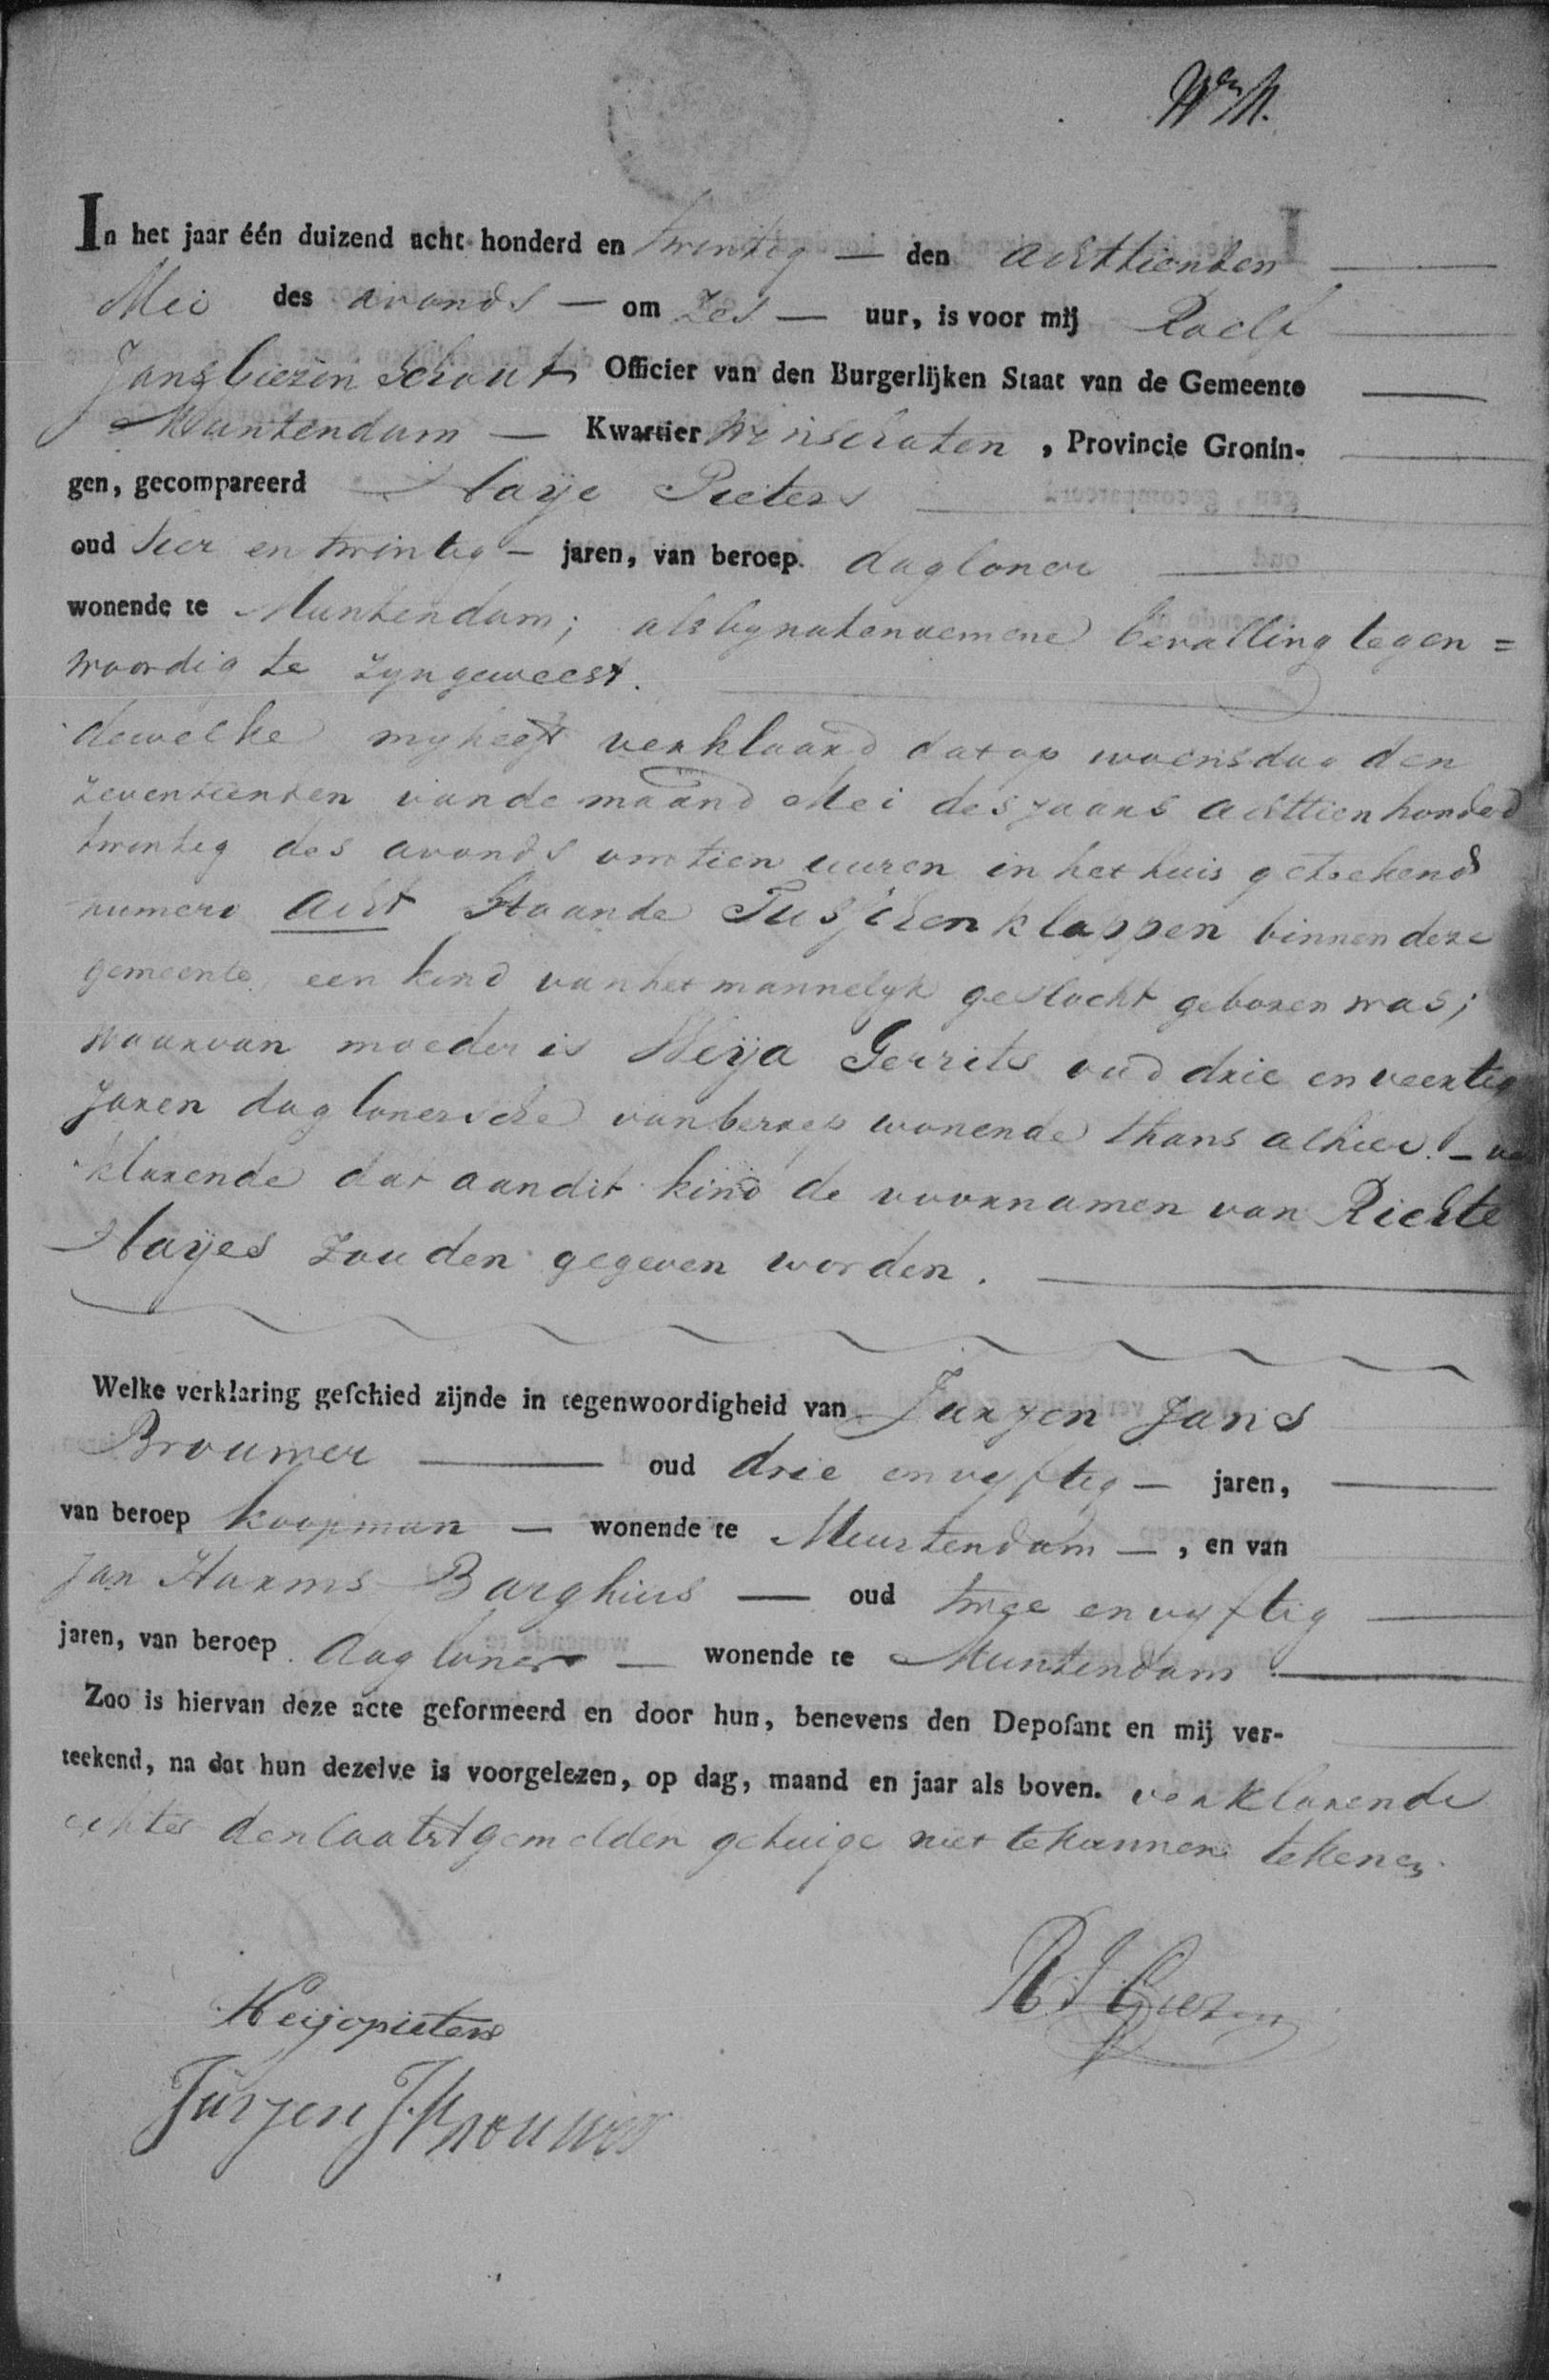 In het jaar één duizend acht honderd en twintig — den achttienden
Mei des avonds — om Zes — uur, is voor mij Roelf
Jans Giezen Schout Officier van den Burgerlijken Staat van de Gemeente
Muntendam — Kwartier Winschoten, Provincie Gronin-
gen, gecompareerd Haye Pieters
oud vier en twintig — jaren, van beroep dagloner
wonende te Muntendam; als by natenoemene bevalling tegen=
woordig te zyn geweest.
dewelke my heeft verklaard dat op woensdag den
zeventienden van de maand Mei des jaars achttien honderd
twintig des avonds om tien uuren in het huis getekend
numero acht Staande Tusschenklappen binnen deze
gemeente, een kind van het mannelyk geslacht geboren was;
waarvan moeder is Weya Gerrits oud drie en veertig
Jaren daglonersche van beroep wonende thans alhier. — ver
klarende dat aan dit kind de voornamen van Richte
Hayes zouden gegeven worden.
Welke verklaring geschied zijnde in tegenwoordigheid van Jurjen Jans
Brouwer — oud drie en vyftig — jaren,
van beroep koopman — wonende te Muntendam —, en van
Jan Harms Barghuis — oud twee en vyftig
jaren, van beroep dagloner — wonende te Muntendam
Zoo is hiervan deze acte geformeerd en door hun, benevens den Deposant en mij ver-
teekend, na dat hun dezelve is voorgelezen, op dag, maand en jaar als boven. verklarende
echter den laatst gemelden getuige niet te kunnen tekenen.
R J Giezen
Heijo pieters
Jurjen J. Brouwer